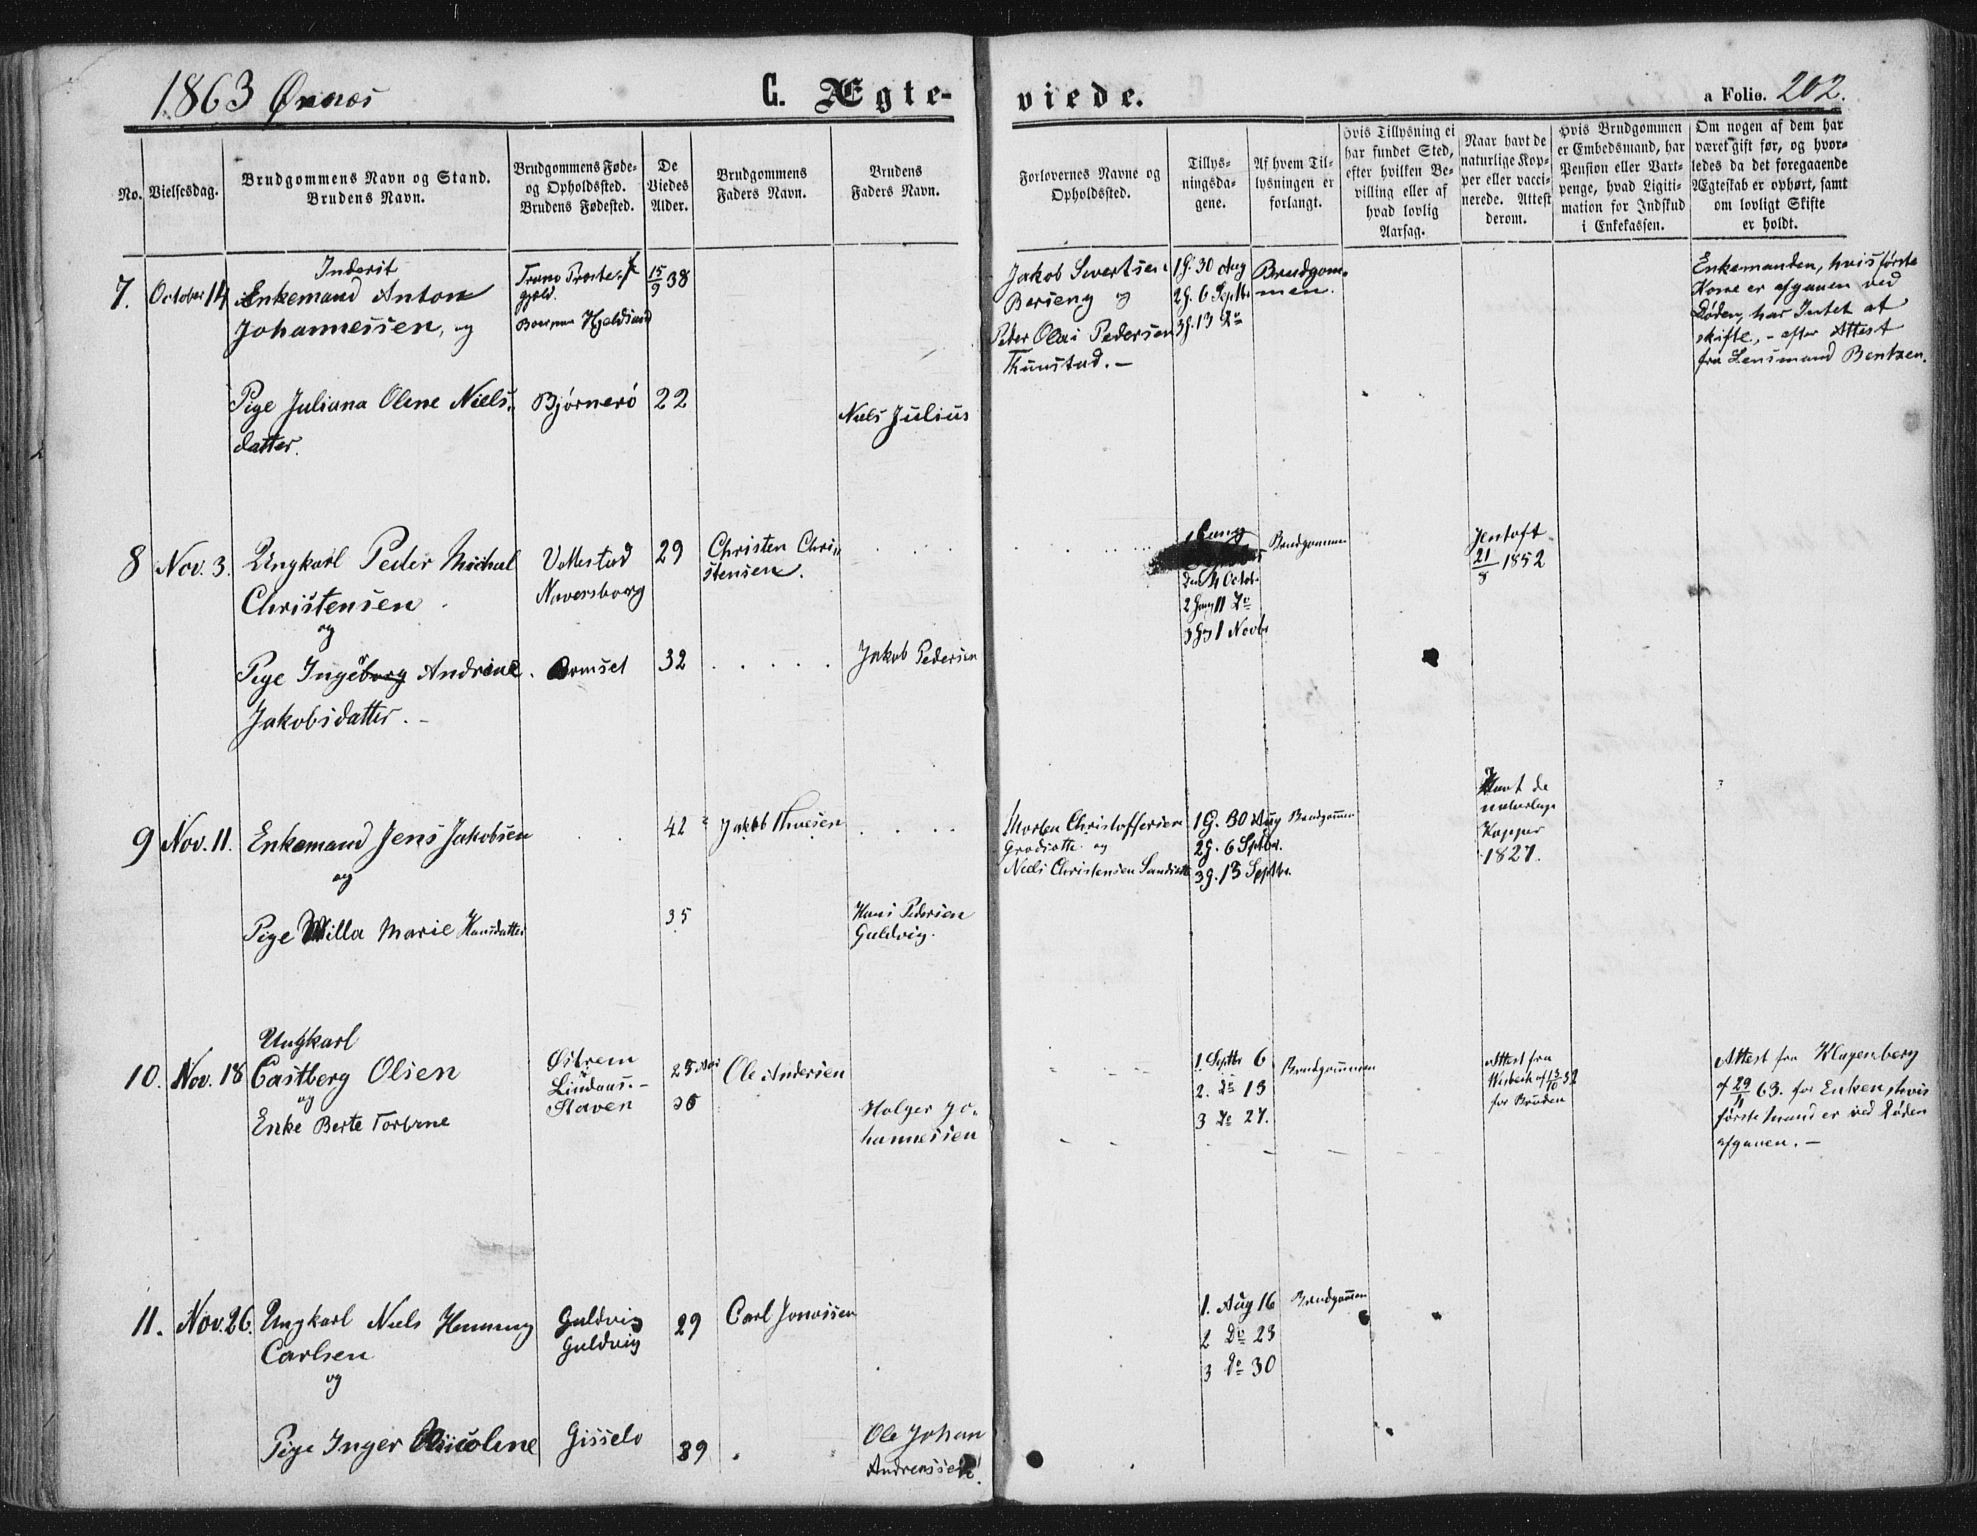 1863 Ørnæs
C. Ægte-
viede.
a Folio. 202.
No.
Vielsesdag.
Brudgommens Navn og Stand.
Brudens Navn.
Brudgommens Føde-
og Opholdssted.
Brudens Fødested.
De
Viedes
Alder.
Brudgommens
Faders Navn.
Brudens
Faders Navn.
Forlovernes Navne og
Opholdssted.
Tillys-
ningsda-
gene.
Af hvem Til-
lysningen er
forlangt.
Hvis Tillysning ei
har fundet Sted,
efter hvilken Be-
villing eller af
hvad lovlig
Aarsag.
Naar havt de
naturlige Kop-
per eller vacci-
nerede. Attest
derom.
Hvis Brudgommen
er Embedsmand, har
Pension eller Vart-
penge, hvad Ligiti-
mation for Indskud
i Enkekassen.
Om nogen af dem har
været gift før, og hvor-
ledes da det foregaaende
Ægteskab er ophørt, samt
om lovligt Skifte
er holdt.
7. October 14
Inderst
Enkemand Anton
Johannessen, og
Hjeldsand
15/9 38
Jakob Sivertsen
og
Peter Olai Pedersen
1 G. 30 Aug
2 G. 6 Septbr
3 G. 13 Do
Brudgom-
men.
Enkemanden, hvis første
Kone er afgaaen ved
Døden, har Intet at
skifte, - efter Attest
fra Lensmand Bentzen.
Pige Juliana Olene Niels-
datter.
Bjørnerø
22
Niels Julius
8 Nov. 3.
Ungkarl Peder Michal
Christensen
og
Naversborg
29
Christen Chri-
stensen.
1 Gang
den 4 Octob.
2 Gang 11 Do
3 Gg 1 Novbr
Brudgommen
Jentoft
21/8 1852
Pige Inge borg Andrine
Jakobsdatter. -
32
Jakob Pedersen
9 Nov. 11.
Enkemand Jens Jakobsen
og
42
Jakob
Morten Christoffersen
og
Niels Christensen
1 G. 30 Aug
2 G. 6 Sptbr.
3 G. 13 Septbr.
Brudgommen
Havt de
naturlige
Kopper
1827.
Pige Milla Marie Hansdatter
35
Hans Pedersen
Guldvig.
10. Nov. 18
Ungkarl
Castberg Olsen
og
Enke Berte Torbine
Østrem
Lindaas. -
Staven
Ole Andersen
Holger Jo-
hannessen
1. Septbr 6
2. Do 13
3 Do 27.
Brudgommen
Attest fra
for Bruden
Attest fra Klagenberg
af 29/11 63. for Enken, hvis
første Mand er ved Døden
afgaaen. -
11. Nov. 26.
Ungkarl Niels Henning
Carlsen
og
Guldvig
Guldvig
29
Carl Jonassen
1. Aug 16
2 Do 23
3 Do 30
Brudgommen
Pige Inger Nicoline
39
Ole Johan
Andreassen.